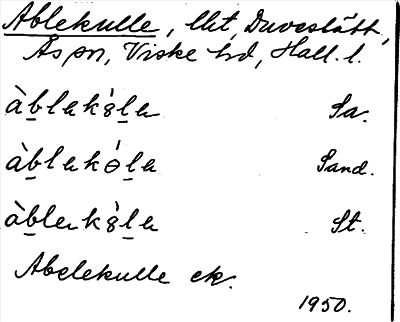 Ablekulle, llt, Duveslätt,
Ås sn, Viske hd, Hall. l.
àb̲lakɵ́l̲a Sa.
àb̲lakɵ́l̲a Sand.
àb̲lɐkɵ̀l̲a St.
Abelekulle ek.
1950.